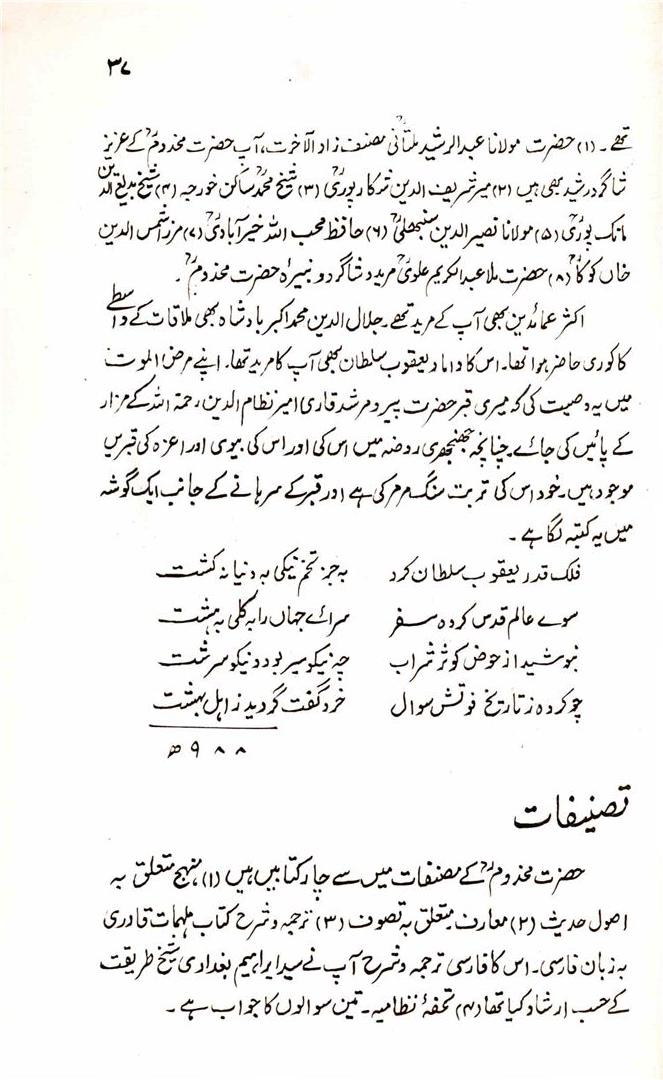 ۳۷
تھے۔ (۱) حضرت مولانا عبدالرشید ملتانیؒ مصنف زاد الآخرت، آپ حضرت مخدومؒ کے عزیز
شاگرد رشید بھی ہیں (۲) میر شریف الدین شکارپوریؒ (۳) شیخ محمدؒ ساکن خورجہ (۴) شیخ بدیع الدین
مانک پوریؒ (۵) مولانا نصیر الدین سنبھلیؒ (۶) حافظ محب اللہ خیرآبادیؒ (۷) مرزا شمس الدین
خاں کوکاؒ (۸) حضرت ملا عبدالکریم علویؒ مرید و شاگرد و نبیرۂ حضرت مخدومؒ۔
اکثر عمائدین بھی آپ کے مرید تھے۔ جلال الدین محمد اکبر بادشاہ بھی ملاقات کے واسطے
کاکوری حاضر ہوا تھا۔ اس کا داماد یعقوب سلطان بھی آپ کا مرید تھا۔ اپنے مرض الموت
میں یہ وصیت کی کہ میری قبر حضرت پیر و مرشد قاری امیر نظام الدین رحمۃ اللہ کے مزار
کے پائیں کی جائے۔ چنانچہ جھنجھری روضہ میں اس کی اور اس کی بیوی اور اعزہ کی قبریں
موجود ہیں۔ خود اس کی تربت سنگ مرمر کی ہے اور قبر کے سرہانے کے جانب ایک گوشہ
میں یہ کتبہ لگا ہے۔
فلک قدر یعقوب سلطان کرد بہ جز تخم نیکی بہ دنیا نہ کشت
سوے عالم قدس کردہ سفر سراے جہاں را بہ کلی بہشت
بنوشید از حوض کوثر شراب چہ نیکو سیر بود و نیکو سرشت
چو کردہ ز تاریخ فوتش سوال خرد گفت گردید ز اہل بہشت
۹۸۸ھ
تصنیفات
حضرت مخدومؒ کے مصنفات میں سے چار کتابیں ہیں (۱) منہج متعلق بہ
اصول حدیث (۲) معارف متعلق بہ تصوف (۳) ترجمہ و شرح کتاب ملہمات قادری
بہ زبان فارسی۔ اس کا فارسی ترجمہ و شرح آپ نے سید ابراہیم بغدادی شیخ طریقت
کے حسب ارشاد کیا تھا (۴) تحفۂ نظامیہ۔ تین سوالوں کا جواب ہے۔